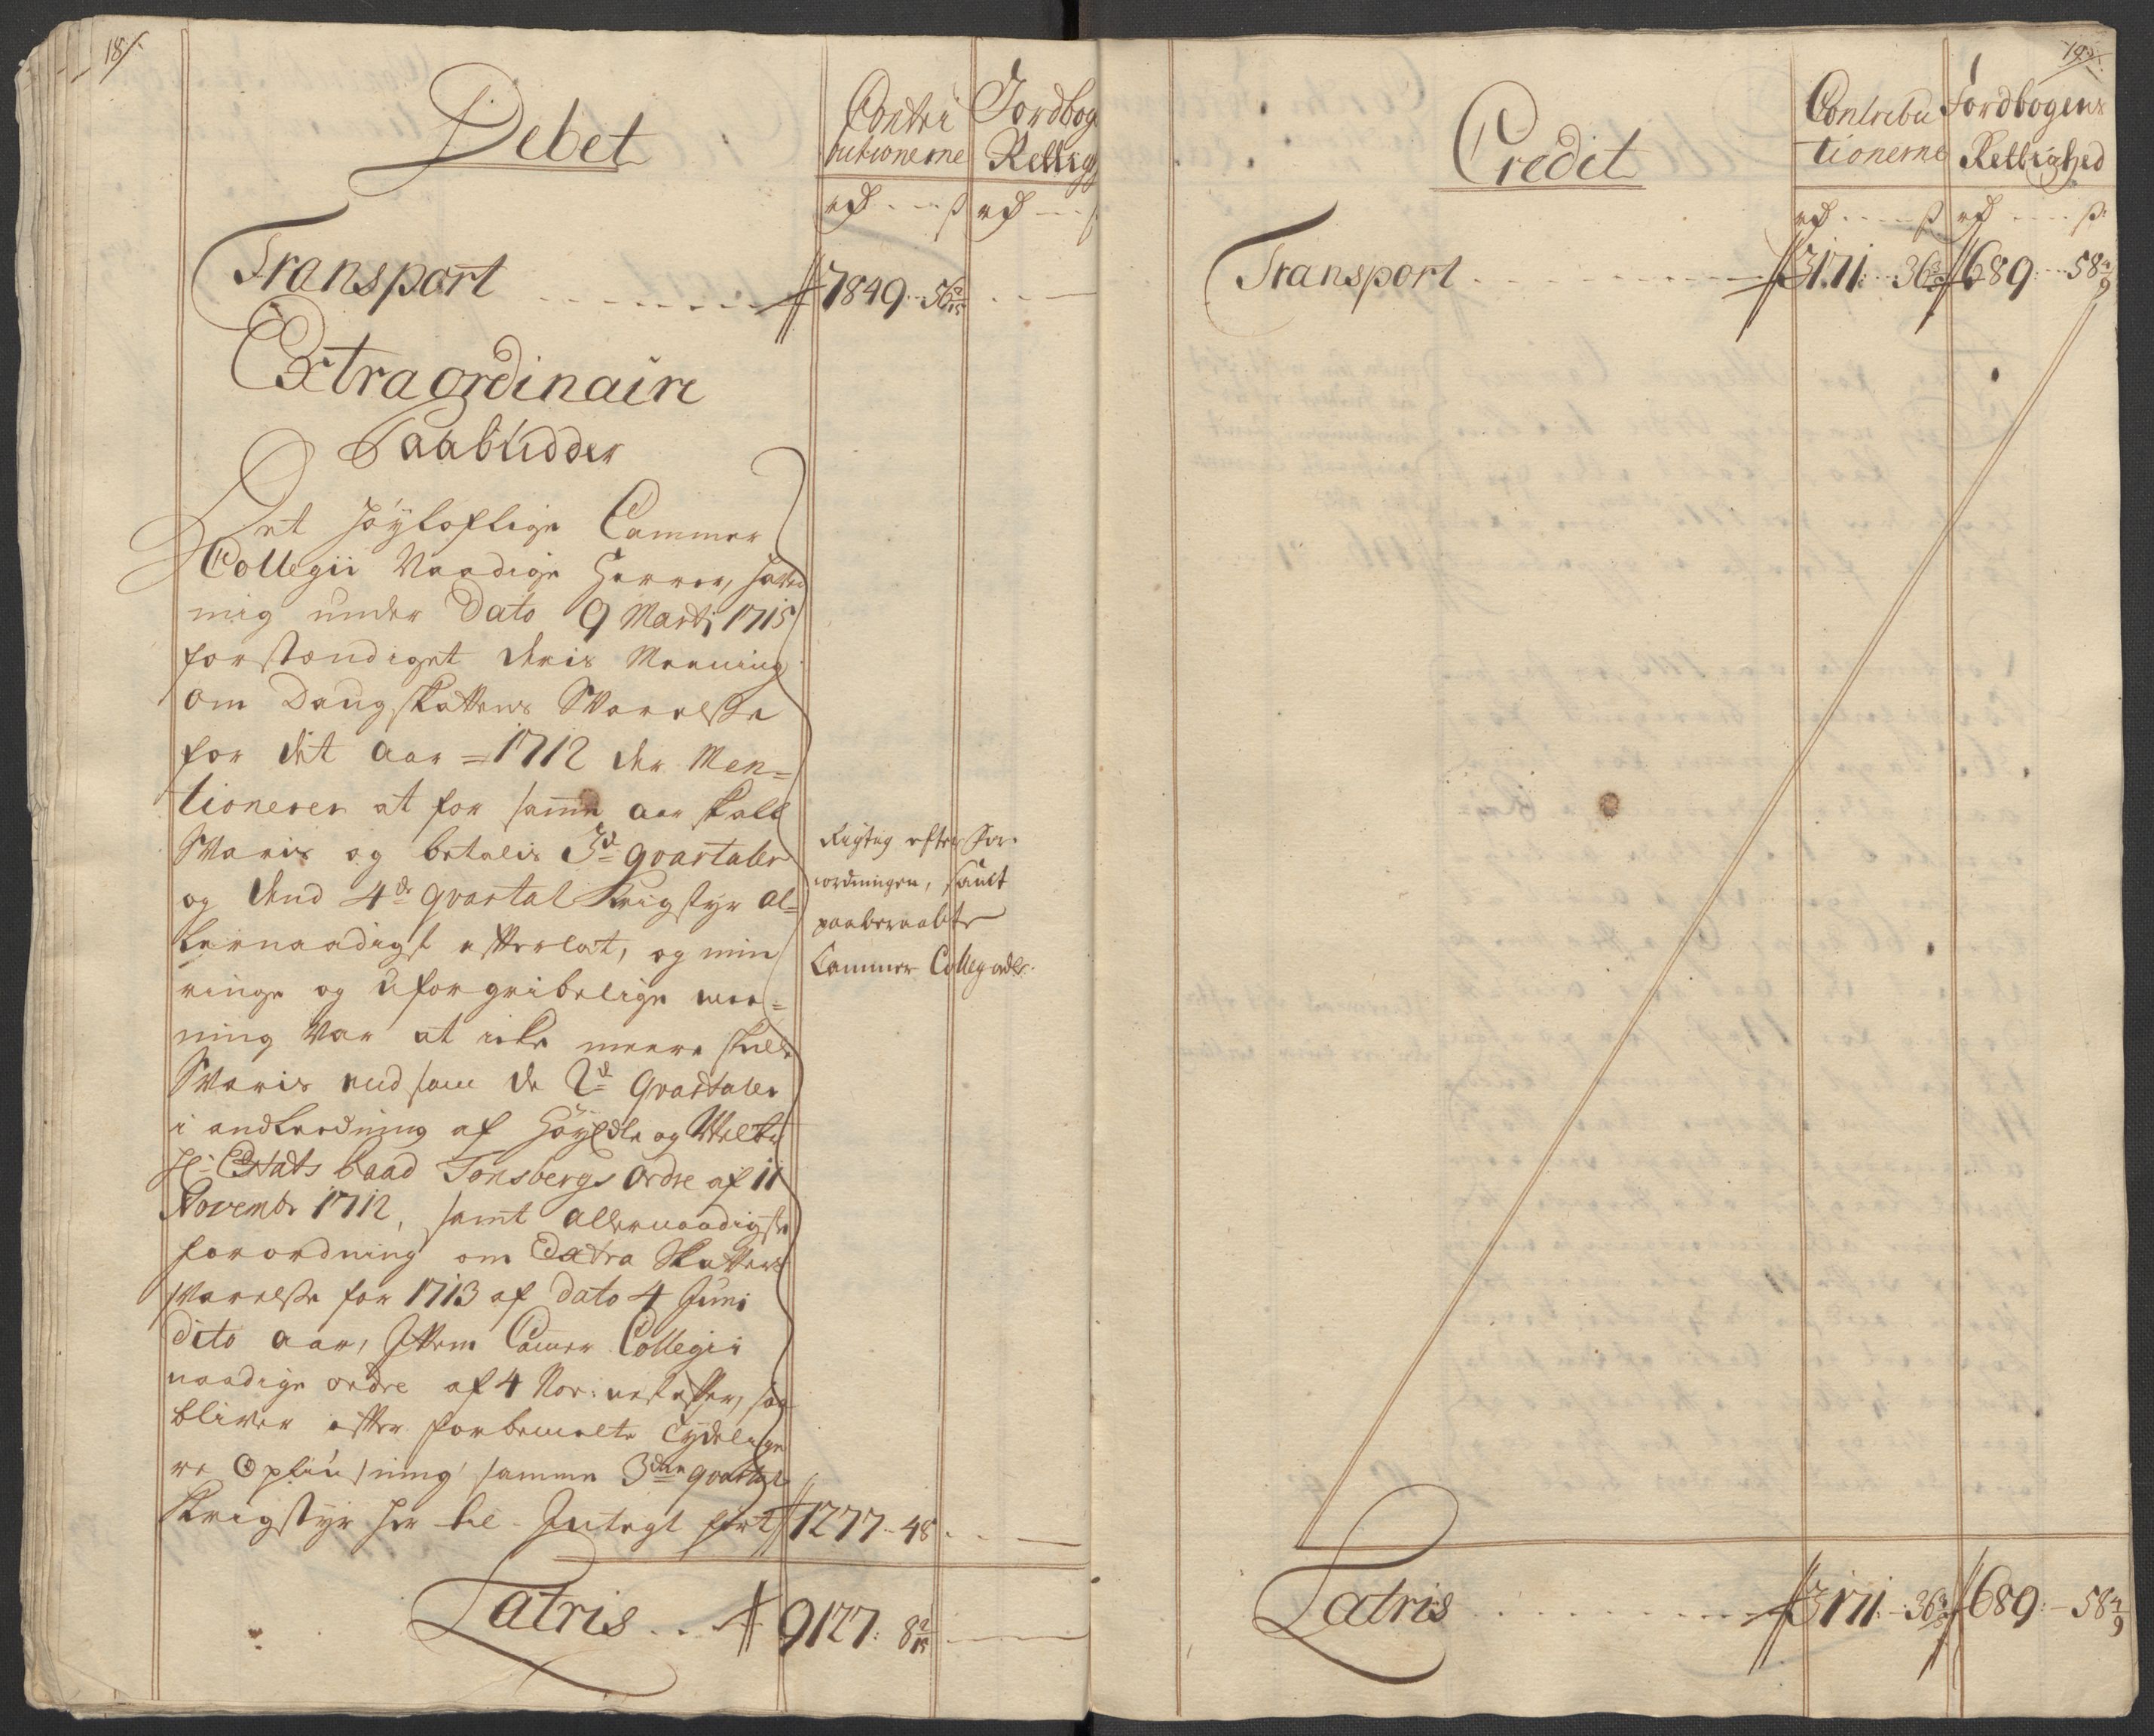 18
Debet
Contri
butionerne
Jordbog
Rettig
rd ß rd
Transport 7849 56 2/15
Extraordinaire
Paabudder
Det Høyloflige Cammer
Collegii Naadige Herrer, haver
mig under Dato 9 Martj 1715
forstændiget deris Meening
om Daugskattens Svarelse
for dit Aar = 1712 der Men=
tionerer at for samme aar skall
Svaris og betalis 3de qvartaler
og dend 4de qvartal Krigstyr al=
lernaadigst efterlat, og min
ringe og uforgribelige mee=
ning var at icke meere skulle
Svaris end som de 2de Qvartaler
i andledning af Høyædle og Velb:
Hr: Etats Raad Tonsbergs ordre af 11
Novembr 1712, samt allernaadigste
forordning om Extra Skatters
svarelse for 1713 af dato 4 Juni
dito aar, Jttem Camer Collegii
naadige ordre af 4 Nov: nest efter, saa
bliver efter forbemelte tydelige
re Opliusning samme 3die qvartal
Krigstyr her til Jndtegt ført 1277 48
Rigtig efter For-
ordningen, samt
paaberaabte
Cammer Colleg ordr.
Latris 9127: 8 2/15
19
Credit
Contribu
tionerne
Jordbogens
Rettighed
rd ß rd ß
Transport 3171: 36 689: 58 4/9
Latris 3171: 36 689: 58 4/9